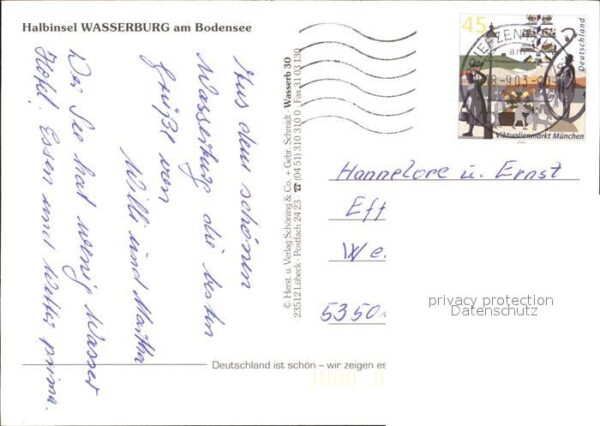 Halbinsel WASSERBURG am Bodensee
Aus dem schönen
Wasserburg die besten
Grüße von
Willi und Martha
Der See hat wenig Wasser
Hotel, Essen und Wetter prima.
© Herst. u. Verlag Schöning & Co. + Gebr. Schmidt · Wasserb 30
23512 Lübeck · Postfach 24 23 · ☎ (04 51) 310 310 0 · Fax 31 03 130
45
Deutschland
Viktualienmarkt München
BRIEFZENTRUM
Hannelore u. Ernst
Eff
We
5350
privacy protection
Datenschutz
Deutschland ist schön – wir zeigen es